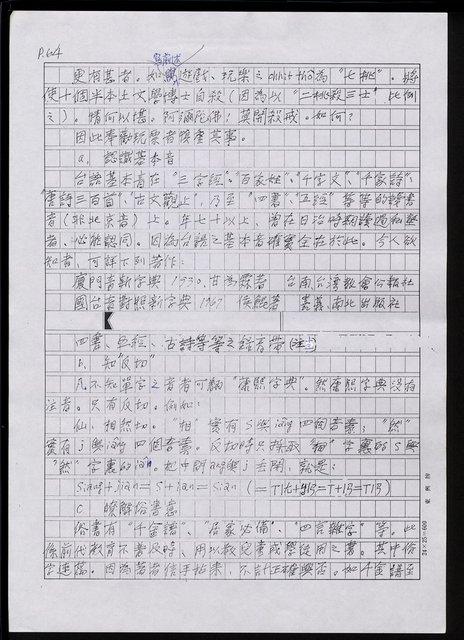 P.64
更有甚者。如寫前述遊戲、玩樂之chhit-thô為“七桃”。將
使十個半本土文學博士自殺(因為以“二桃殺三士”比例
之)。情何以堪。阿彌陀佛!莫開殺戒。如何?
因此奉勸玩票者慎重其事。
a. 認識基本音
台語基本音在“三字經”、“百家姓”、“千字文”、“千家詩”、
“唐詩三百首”、“古文觀止”,乃至“四書”、“五經”等等的讀書
音(非北京音)上。年七十以上,曾在日治時期讀過私塾
者,必能認同。因為台語之基本音確實全在於此。今人欲
知者,可詳下列著作:
廈門音新字典 1930. 甘為霖著 台南台灣教會公報社
國台音對照新字典 1967 侯 著 嘉義南北出版社
四書、五經、古詩等等之錄音帶(註
b. 知“反切”
凡不知單字之音者可翻“康熙字典”。然康熙字典沒有
注音。只有反切。例如:
仙,相然切。“相”實有s與iang四個音素;“然”
實有j與ian四個音素。反切時只採取“相”字裏的s與
“然”字裏的ian。把中間ang與j去開,就是:
siang+jian=s+ian=sian
c 瞭解俗書意
俗書有“千金譜”、“居家必備”、“四言雜字”等。此
係前代教育不普及時、用以教兒童或學徒用之書。其中俗
字連篇。因為著者信手拈來,不計正確與否。如千金譜至
24×25=600